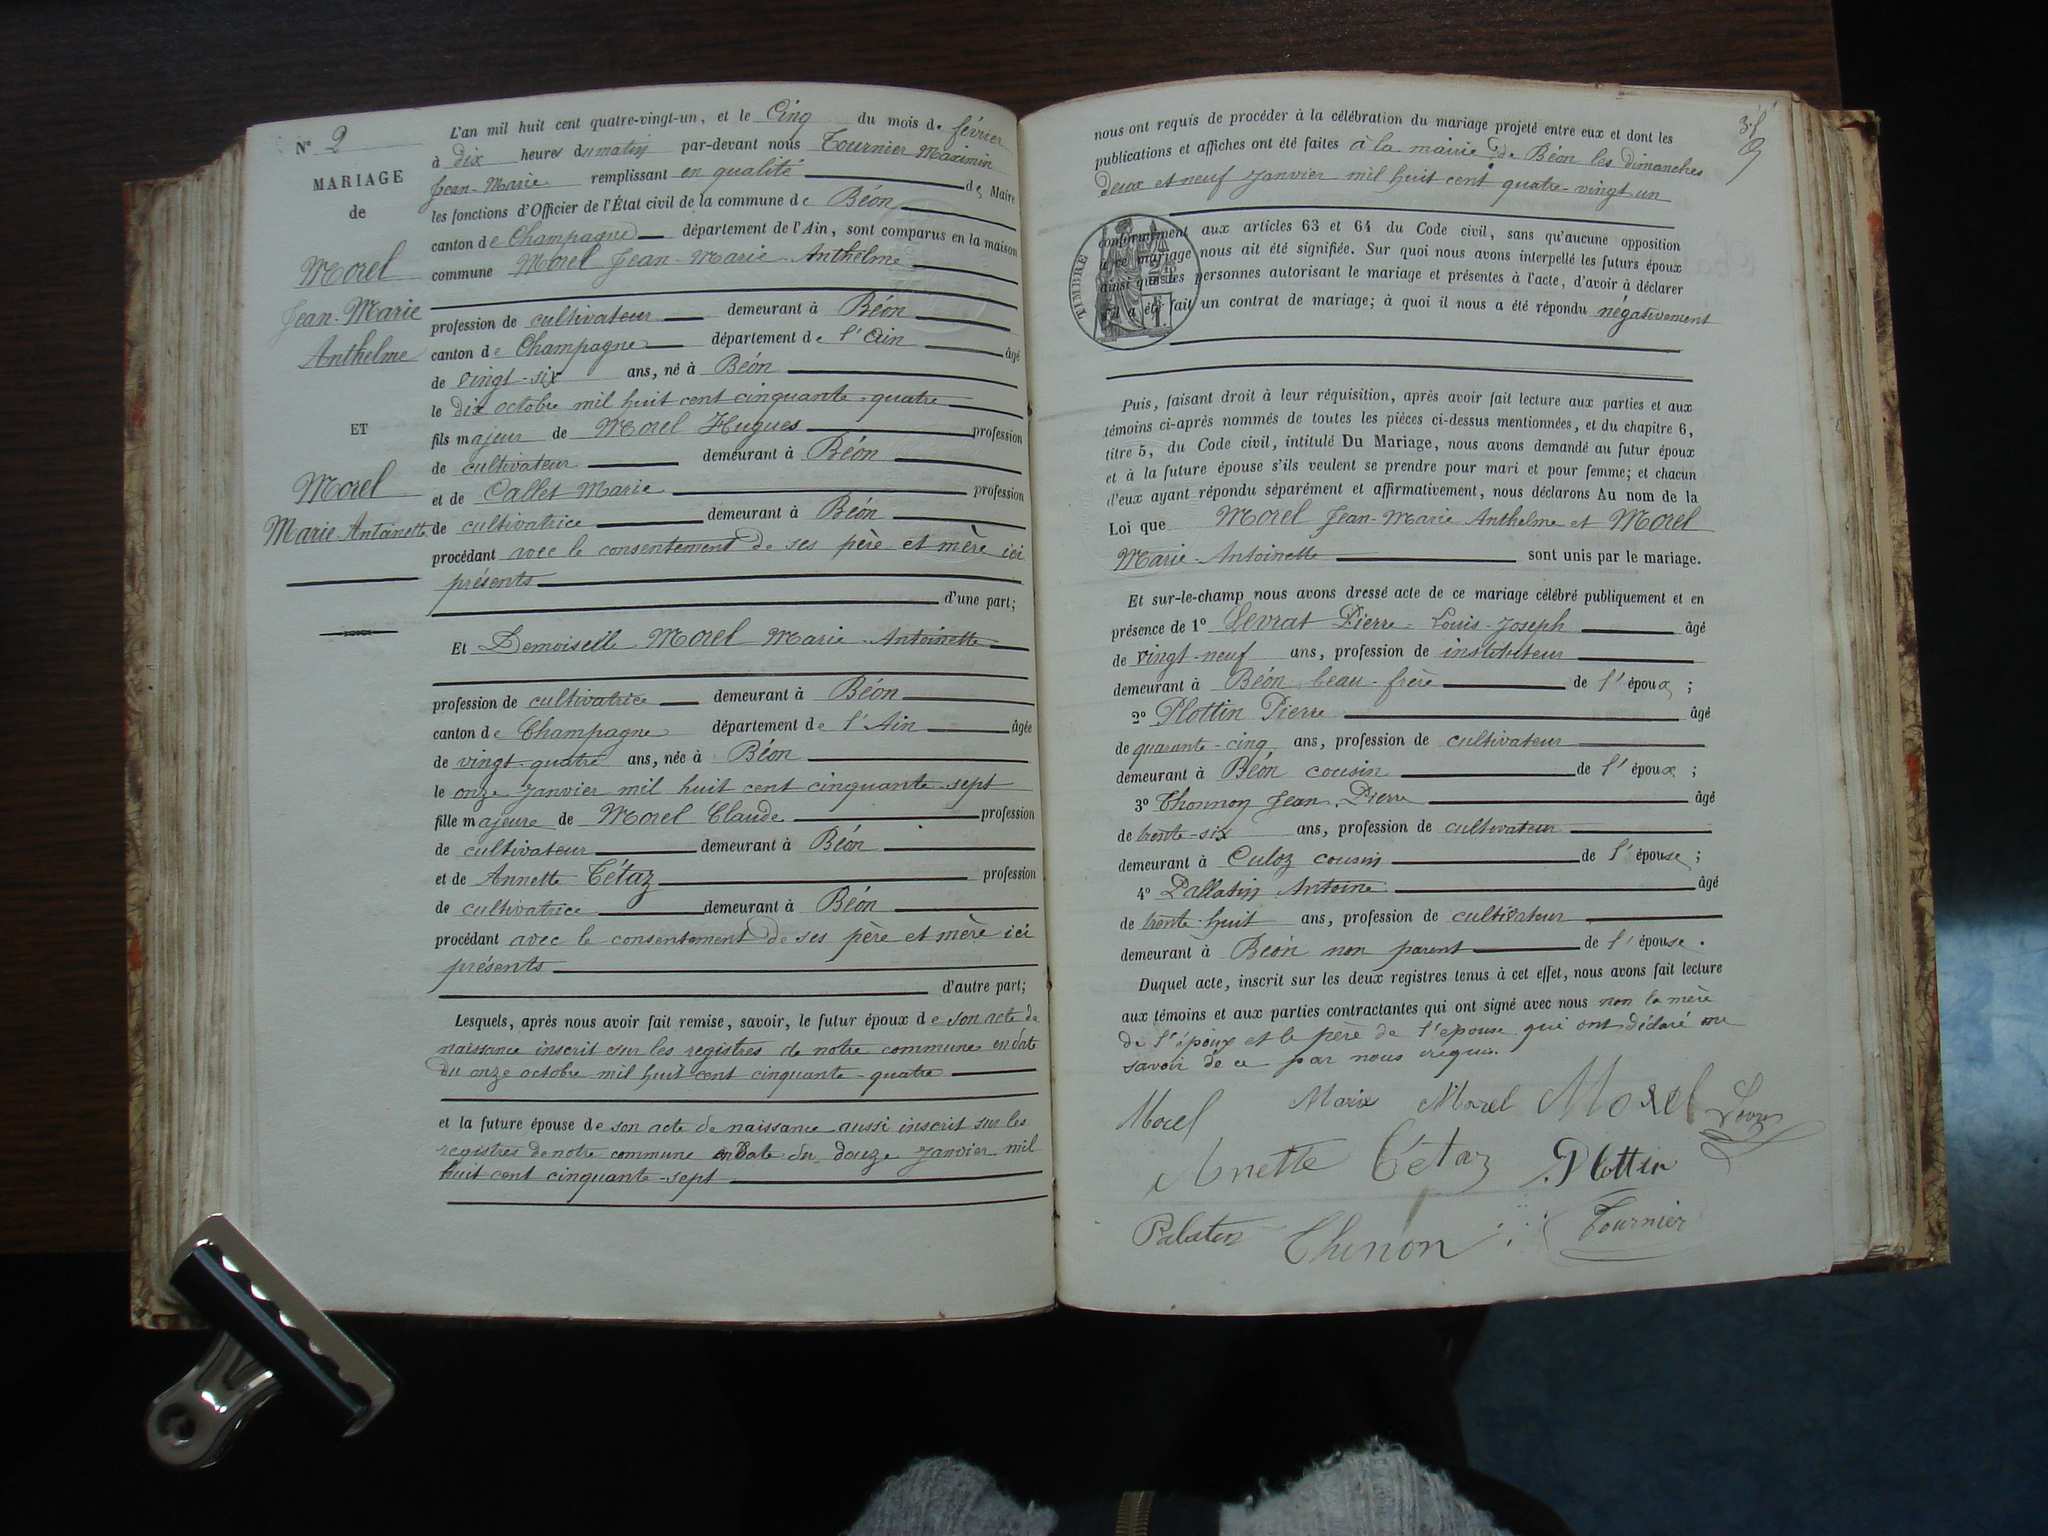 N° 2
MARIAGE
de
Morel
Jean-Marie
Anthelme
ET
Morel
Marie Antoinette
L'an mil huit cent quatre-vingt-un, et le Cinq du mois de février
à dix heures du matin par-devant nous Tournier Maximin
Jean-Marie remplissant en qualité de Maire
les fonctions d'Officier de l'État civil de la commune de Béon
canton de Champagne département de l'Ain, sont comparus en la maison
commune Morel Jean-Marie Anthelme
profession de cultivateur demeurant à Béon
canton de Champagne département de l'Ain âgé
de vingt-six ans, né à Béon
le dix octobre mil huit cent cinquante-quatre
fils majeur de Morel Hugues profession
de cultivateur demeurant à Béon
et de Callet Marie profession
de cultivatrice demeurant à Béon
procédant avec le consentement de ses père et mère ici
présents
d'une part;
Et Demoiselle Morel Marie-Antoinette
profession de cultivatrice demeurant à Béon
canton de Champagne département de l'Ain âgée
de vingt-quatre ans, née à Béon
le onze janvier mil huit cent cinquante-sept
fille majeure de Morel Claude profession
de cultivateur demeurant à Béon
et de Annette Tétaz profession
de cultivatrice demeurant à Béon
procédant avec le consentement de ses père et mère ici
présents
d'autre part;
Lesquels, après nous avoir fait remise, savoir, le futur époux de son acte de
naissance inscrit sur les registres de notre commune en date
du onze octobre mil huit cent cinquante-quatre
et la future épouse de son acte de naissance aussi inscrit sur les
registres de notre commune en date du douze janvier mil
huit cent cinquante-sept
nous ont requis de procéder à la célébration du mariage projeté entre eux et dont les
publications et affiches ont été faites à la mairie de Béon les dimanches
deux et neuf janvier mil huit cent quatre-vingt-un
TIMBRE
conformément aux articles 63 et 64 du Code civil, sans qu'aucune opposition
à ce mariage nous ait été signifiée. Sur quoi nous avons interpellé les futurs époux
ainsi que les personnes autorisant le mariage et présentes à l'acte, d'avoir à déclarer
s'il a été fait un contrat de mariage; à quoi il nous a été répondu négativement
Puis, faisant droit à leur réquisition, après avoir fait lecture aux parties et aux
témoins ci-après nommés de toutes les pièces ci-dessus mentionnées, et du chapitre 6,
titre 5, du Code civil, intitulé Du Mariage, nous avons demandé au futur époux
et à la future épouse s'ils veulent se prendre pour mari et pour femme; et chacun
d'eux ayant répondu séparément et affirmativement, nous déclarons Au nom de la
Loi que Morel Jean-Marie Anthelme et Morel
Marie-Antoinette sont unis par le mariage.
Et sur-le-champ nous avons dressé acte de ce mariage célébré publiquement et en
présence de 1° Levrat Pierre-Louis-Joseph âgé
de vingt-neuf ans, profession de instituteur
demeurant à Béon beau-frère de l'époux;
2° Plottin Pierre âgé
de quarante-cinq ans, profession de cultivateur
demeurant à Béon cousin de l'époux;
3° Jean-Pierre âgé
de trente-six ans, profession de cultivateur
demeurant à Culoz cousin de l'épouse;
4° Pallatin Antoine âgé
de trente-huit ans, profession de cultivateur
demeurant à Béon non parent de l'épouse.
Duquel acte, inscrit sur les deux registres tenus à cet effet, nous avons fait lecture
aux témoins et aux parties contractantes qui ont signé avec nous non la mère
de l'époux et le père de l'épouse qui ont déclaré ne
savoir de ce par nous requis.
Morel Marie Morel Morel
Anette Tétaz Plottin
Palatin Thenon Tournier